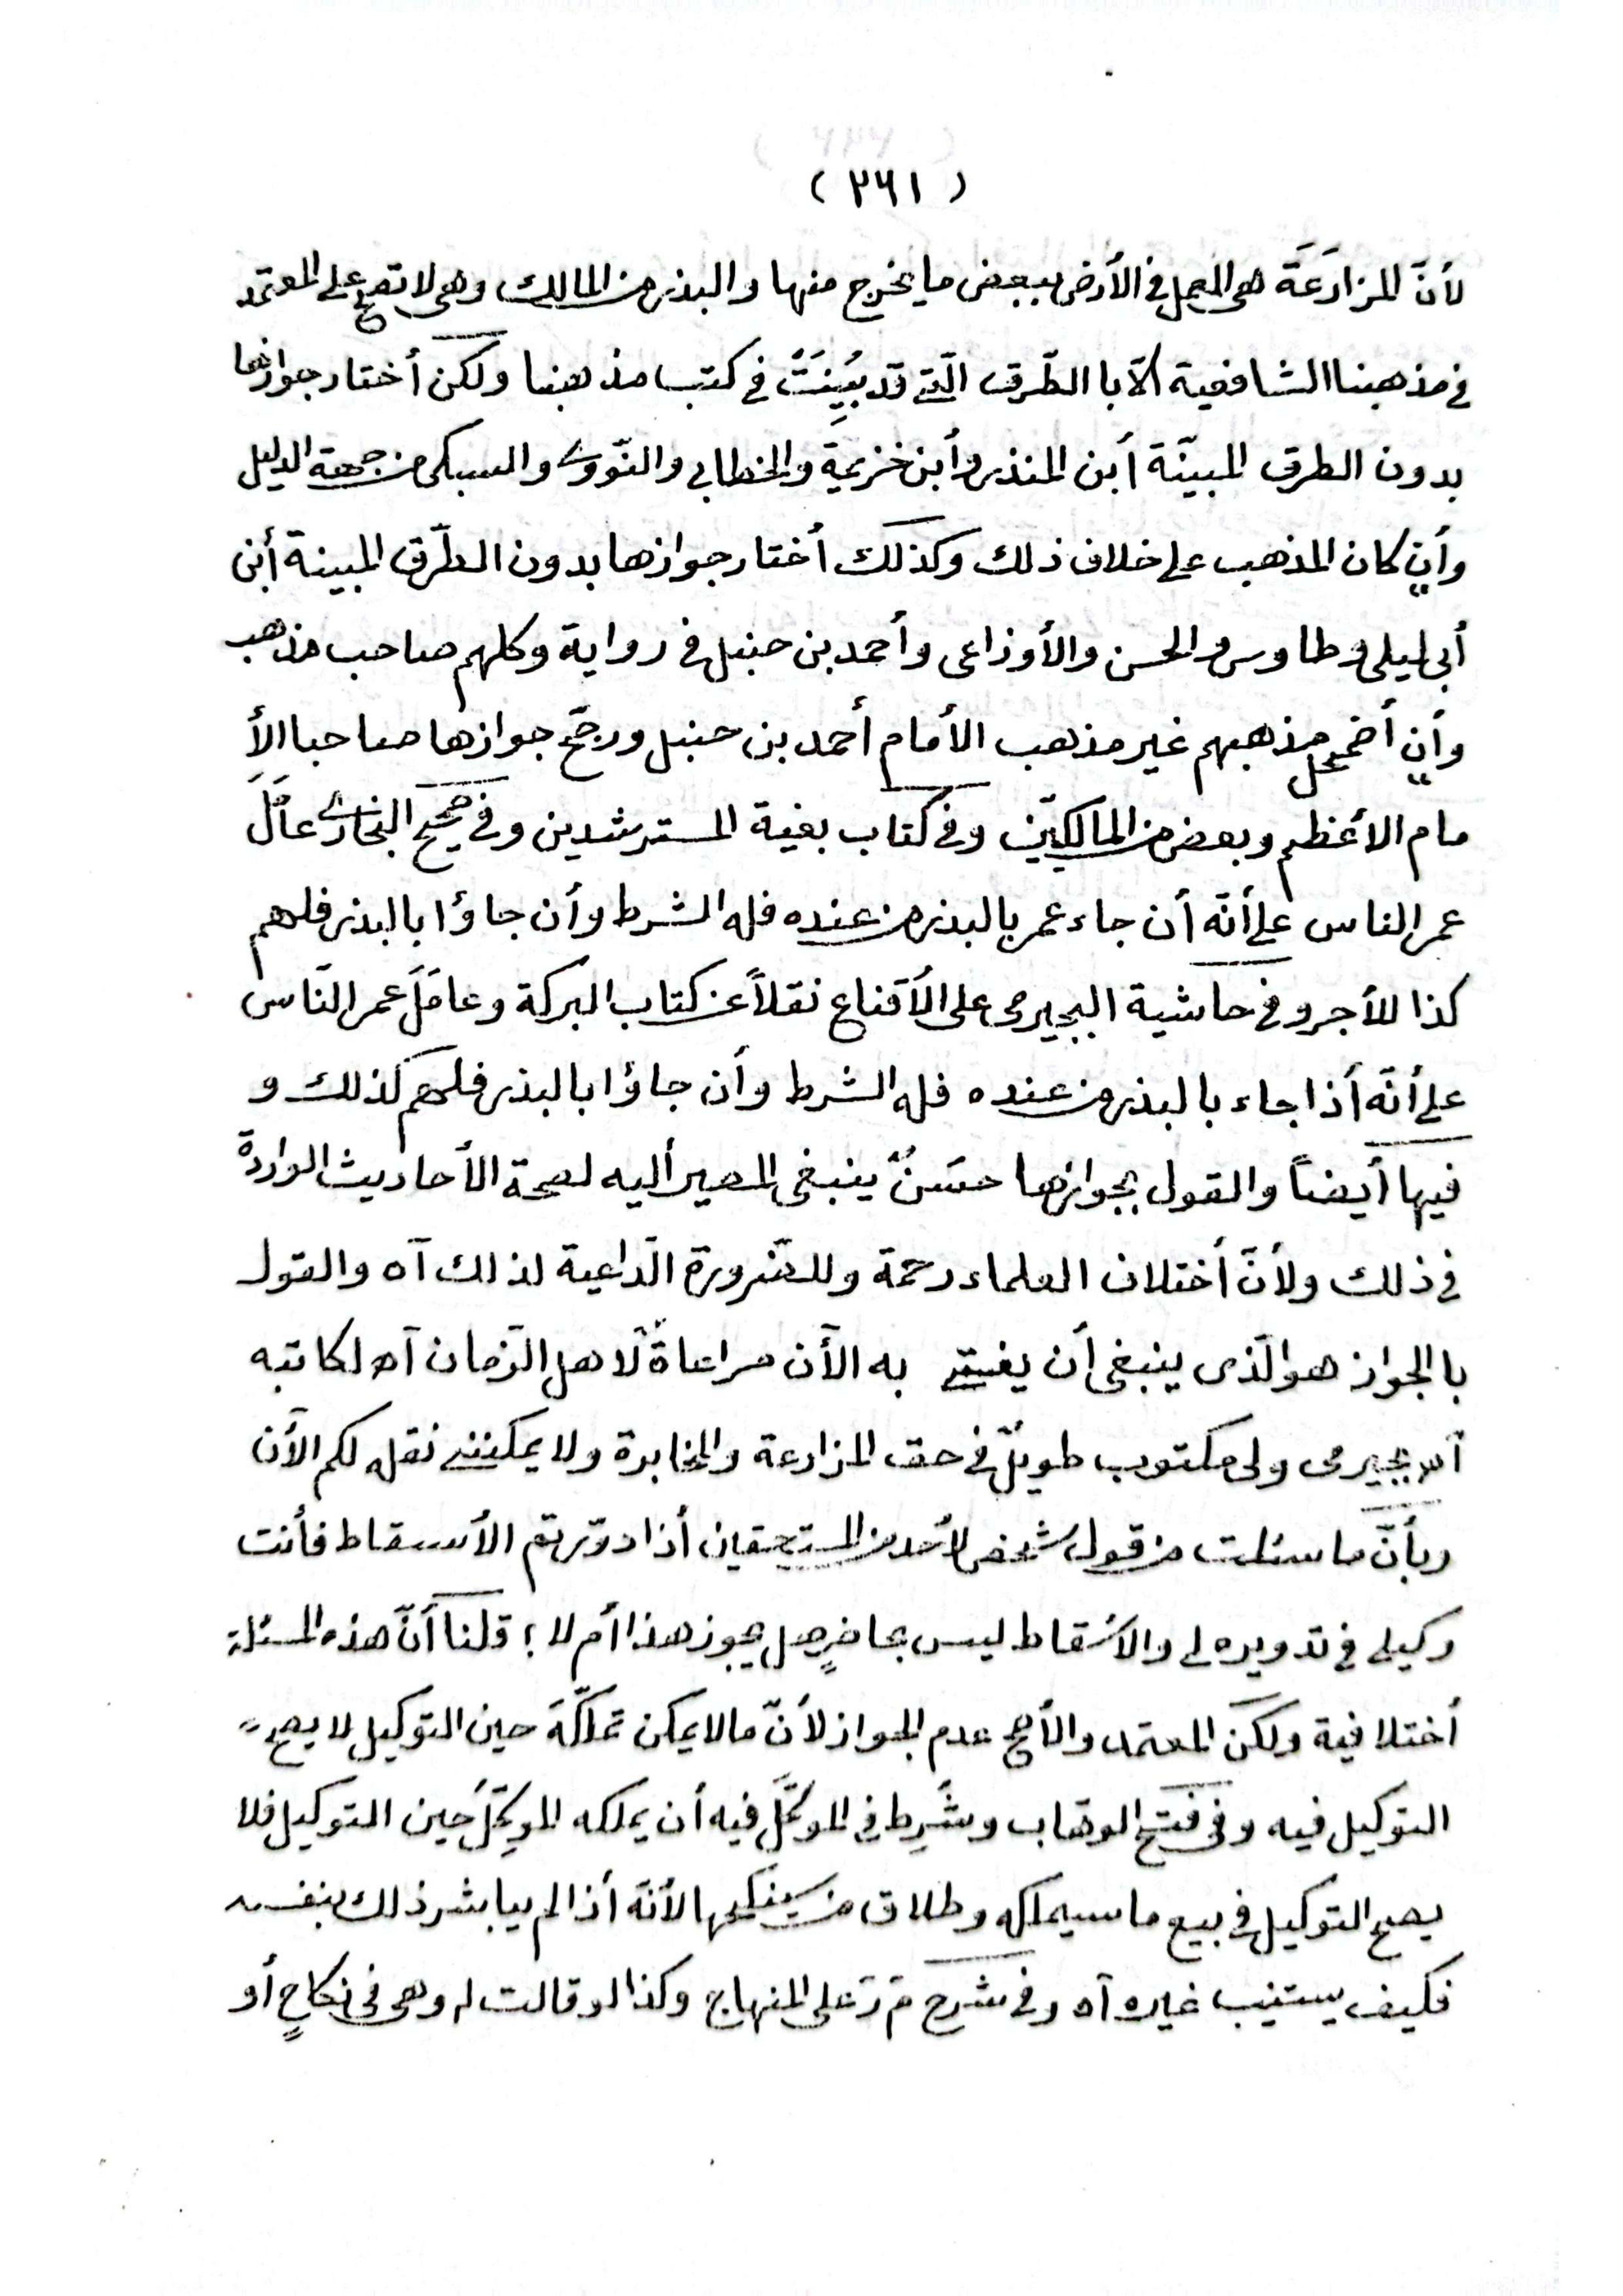 (٢٦١)
لأنّ المزارَعَة هى العمل فى الأرض ببعض ما يخرج منها والبذر من المالك وهى لا تصح على المعتمد
فى مذهبنا الشافعية ألّا با الطّرق الّتى قد بُيِنَتْ فى كتب مذهبنا ولكن أختار جوازها
بدون الطرق المبيّنة أبن المنذر وأبن خزيمة والخطابى والنّووى والسبكى من جهة الدليل
وأن كان المذهب على خلاف ذلك وكذلك أختار جوازها بدون الطّرق المبينة أبن
أبى ليلى وطاوس والحسن والأوزاعى وأحمد بن حنبل فى رواية وكلهم صاحب مذهب
وأن أضمحل مذهبهم غير مذهب الأمام أحمد بن حنبل ورجّح جوازها صاحبا الأ
مام الأعظم وبعض من المالكيّين وفى كتاب بغية المسترشدين وفى صحيح البخارى عامَلَ
عمر الناس على أنّه أن جاء عمر بالبذر من عنده فله الشرط وأن جاؤا بالبذر فلهم
كذا للأجر وفى حاشية البجيرمى على الأقناع نقلاً عن كتاب البركة وعامَلَ عمر النّاس
على أنّه أذا جاء بالبذر من عنده فله الشرط وأن جاؤا بالبذر فلهم كذلك و
فيها أيضاً والقول بجوازها حسَنٌ ينبغى المصير أليه لصحة الأحاديث الواردة
فى ذلك ولأنّ أختلاف العلماء رحمة وللضّرورة الّداعية لذلك آه والقول
بالجواز هو الّذى ينبغى أن يفتى به الأن مراعاةً لأهل الّزمان آه لكاتبه
آه بجيرمى ولى مكتوب طويلٌ فى حق المزارعة والمخابرة ولا يمكننى نقله لكم الأن
وبأنّ ما سئلت من قول شخص لأحد من المستحقين أذا دوّرتم الأسقاط فأنت
وكيلى فى تدويره لى والأسقاط ليس بحاضرٍ هل يجوز هذا أم لا؟ قلنا أنّ هذه المسئلة
أختلافية ولكن المعتمد والأصح عدم الجواز لأنّ ما لا يمكن تملكّهَ حين التوكيل لا يصح
التوكيل فيه وفى فتح الوهّاب وشُرِط فى الموكَّل فيه أن يملكه الموكِّل حين التوكيل فلا
يصح التوكيل فى بيع ما سيملكه وطلاق من سينكحها لأنّه أذا لم يباشر ذلك بنفسه
فكيف يستنيب غيره آه وفى شرح مَ رَ على المنهاج وكذا لو قالت له وهى فى نكاحٍ أو